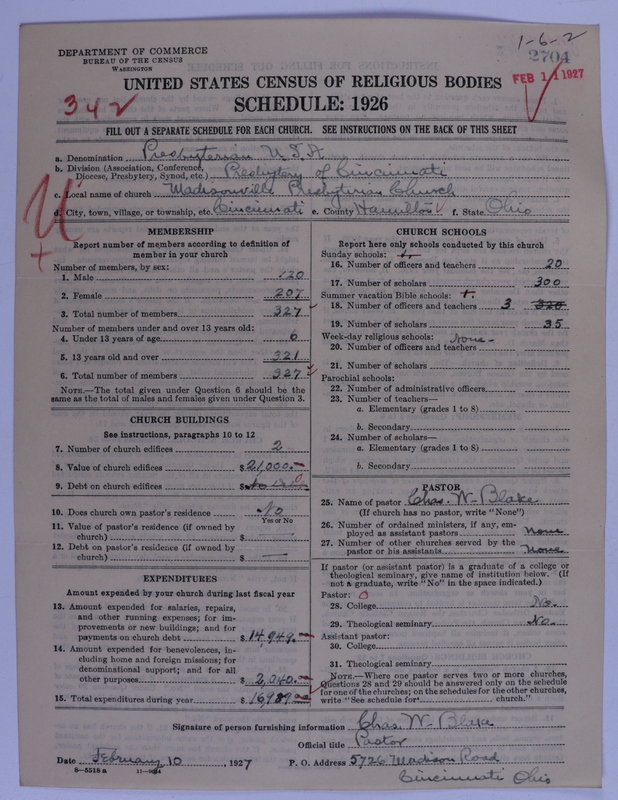 1-6-2
2704
FEB 11 1927
DEPARTMENT OF COMMERCE
BUREAU OF THE CENSUS
WASHINGTON
UNITED STATES CENSUS OF RELIGIOUS BODIES
SCHEDULE: 1926
342
FILL OUT A SEPARATE SCHEDULE FOR EACH CHURCH. SEE INSTRUCTIONS ON THE BACK OF THIS SHEET
a. Denomination Presbyterian U.S.A.
b. Division (Association, Conference, Diocese, Presbytery, Synod, etc.) Presbytery of Cincinnati
c. Local name of church Madisonville Presbyterian Church
d. City, town, village, or township, etc. Cincinnati e. County Hamilton f. State Ohio
MEMBERSHIP
Report number of members according to definition of
member in your church
Number of members, by sex:
1. Male 120
2. Female 207
3. Total number of members 327
Number of members under and over 13 years old:
4. Under 13 years of age 6
5. 13 years old and over 321
6. Total number of members 327
NOTE.—The total given under Question 6 should be the
same as the total of males and females given under Question 3.
CHURCH BUILDINGS
See instructions, paragraphs 10 to 12
7. Number of church edifices 2
8. Value of church edifices $21,000.
9. Debt on church edifices $
10. Does church own pastor's residence? No
Yes or No
11. Value of pastor's residence (if owned by
church) $
12. Debt on pastor's residence (if owned by
church) $
EXPENDITURES
Amount expended by your church during last fiscal year
13. Amount expended for salaries, repairs,
and other running expenses; for im-
provements or new buildings; and for
payments on church debt $14,949.
14. Amount expended for benevolences, in-
cluding home and foreign missions; for
denominational support; and for all
other purposes $2,040.
15. Total expenditures during year $16,989.
CHURCH SCHOOLS
Report here only schools conducted by this church
Sunday schools:
16. Number of officers and teachers 20
17. Number of scholars 300
Summer vacation Bible schools:
18. Number of officers and teachers 3 320
19. Number of scholars 35
Week-day religious schools: None-
20. Number of officers and teachers
21. Number of scholars
Parochial schools:
22. Number of administrative officers
23. Number of teachers—
a. Elementary (grades 1 to 8)
b. Secondary
24. Number of scholars—
a. Elementary (grades 1 to 8)
b. Secondary
PASTOR
25. Name of pastor Chas. W. Blake
(If church has no pastor, write "None")
26. Number of ordained ministers, if any, em-
ployed as assistant pastors None
27. Number of other churches served by the
pastor or his assistants None
If pastor (or assistant pastor) is a graduate of a college or
theological seminary, give name of institution below. (If
not a graduate, write "No" in the space indicated.)
Pastor:
28. College No.
29. Theological seminary No.
Assistant pastor:
30. College
31. Theological seminary
NOTE.—Where one pastor serves two or more churches,
Questions 28 and 29 should be answered only on the schedule
for one of the churches; on the schedules for the other churches,
write "See schedule for church."
Signature of person furnishing information Chas. W. Blake
Official title Pastor
Date February 10, 1927 P. O. Address 5726 Madison Road
8-5518 a
Cincinnati Ohio